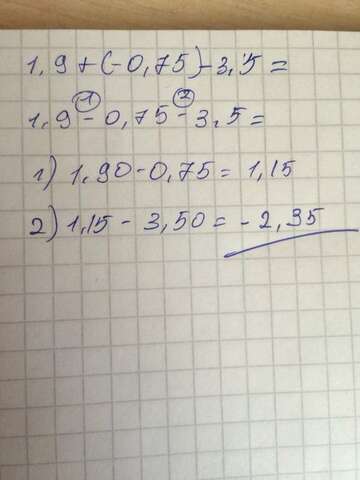 1,9+(-0,75)-3,5=
① ②
1,9-0,75-3,5=
1) 1,90-0,75=1,15
2) 1,15-3,50=-2,35